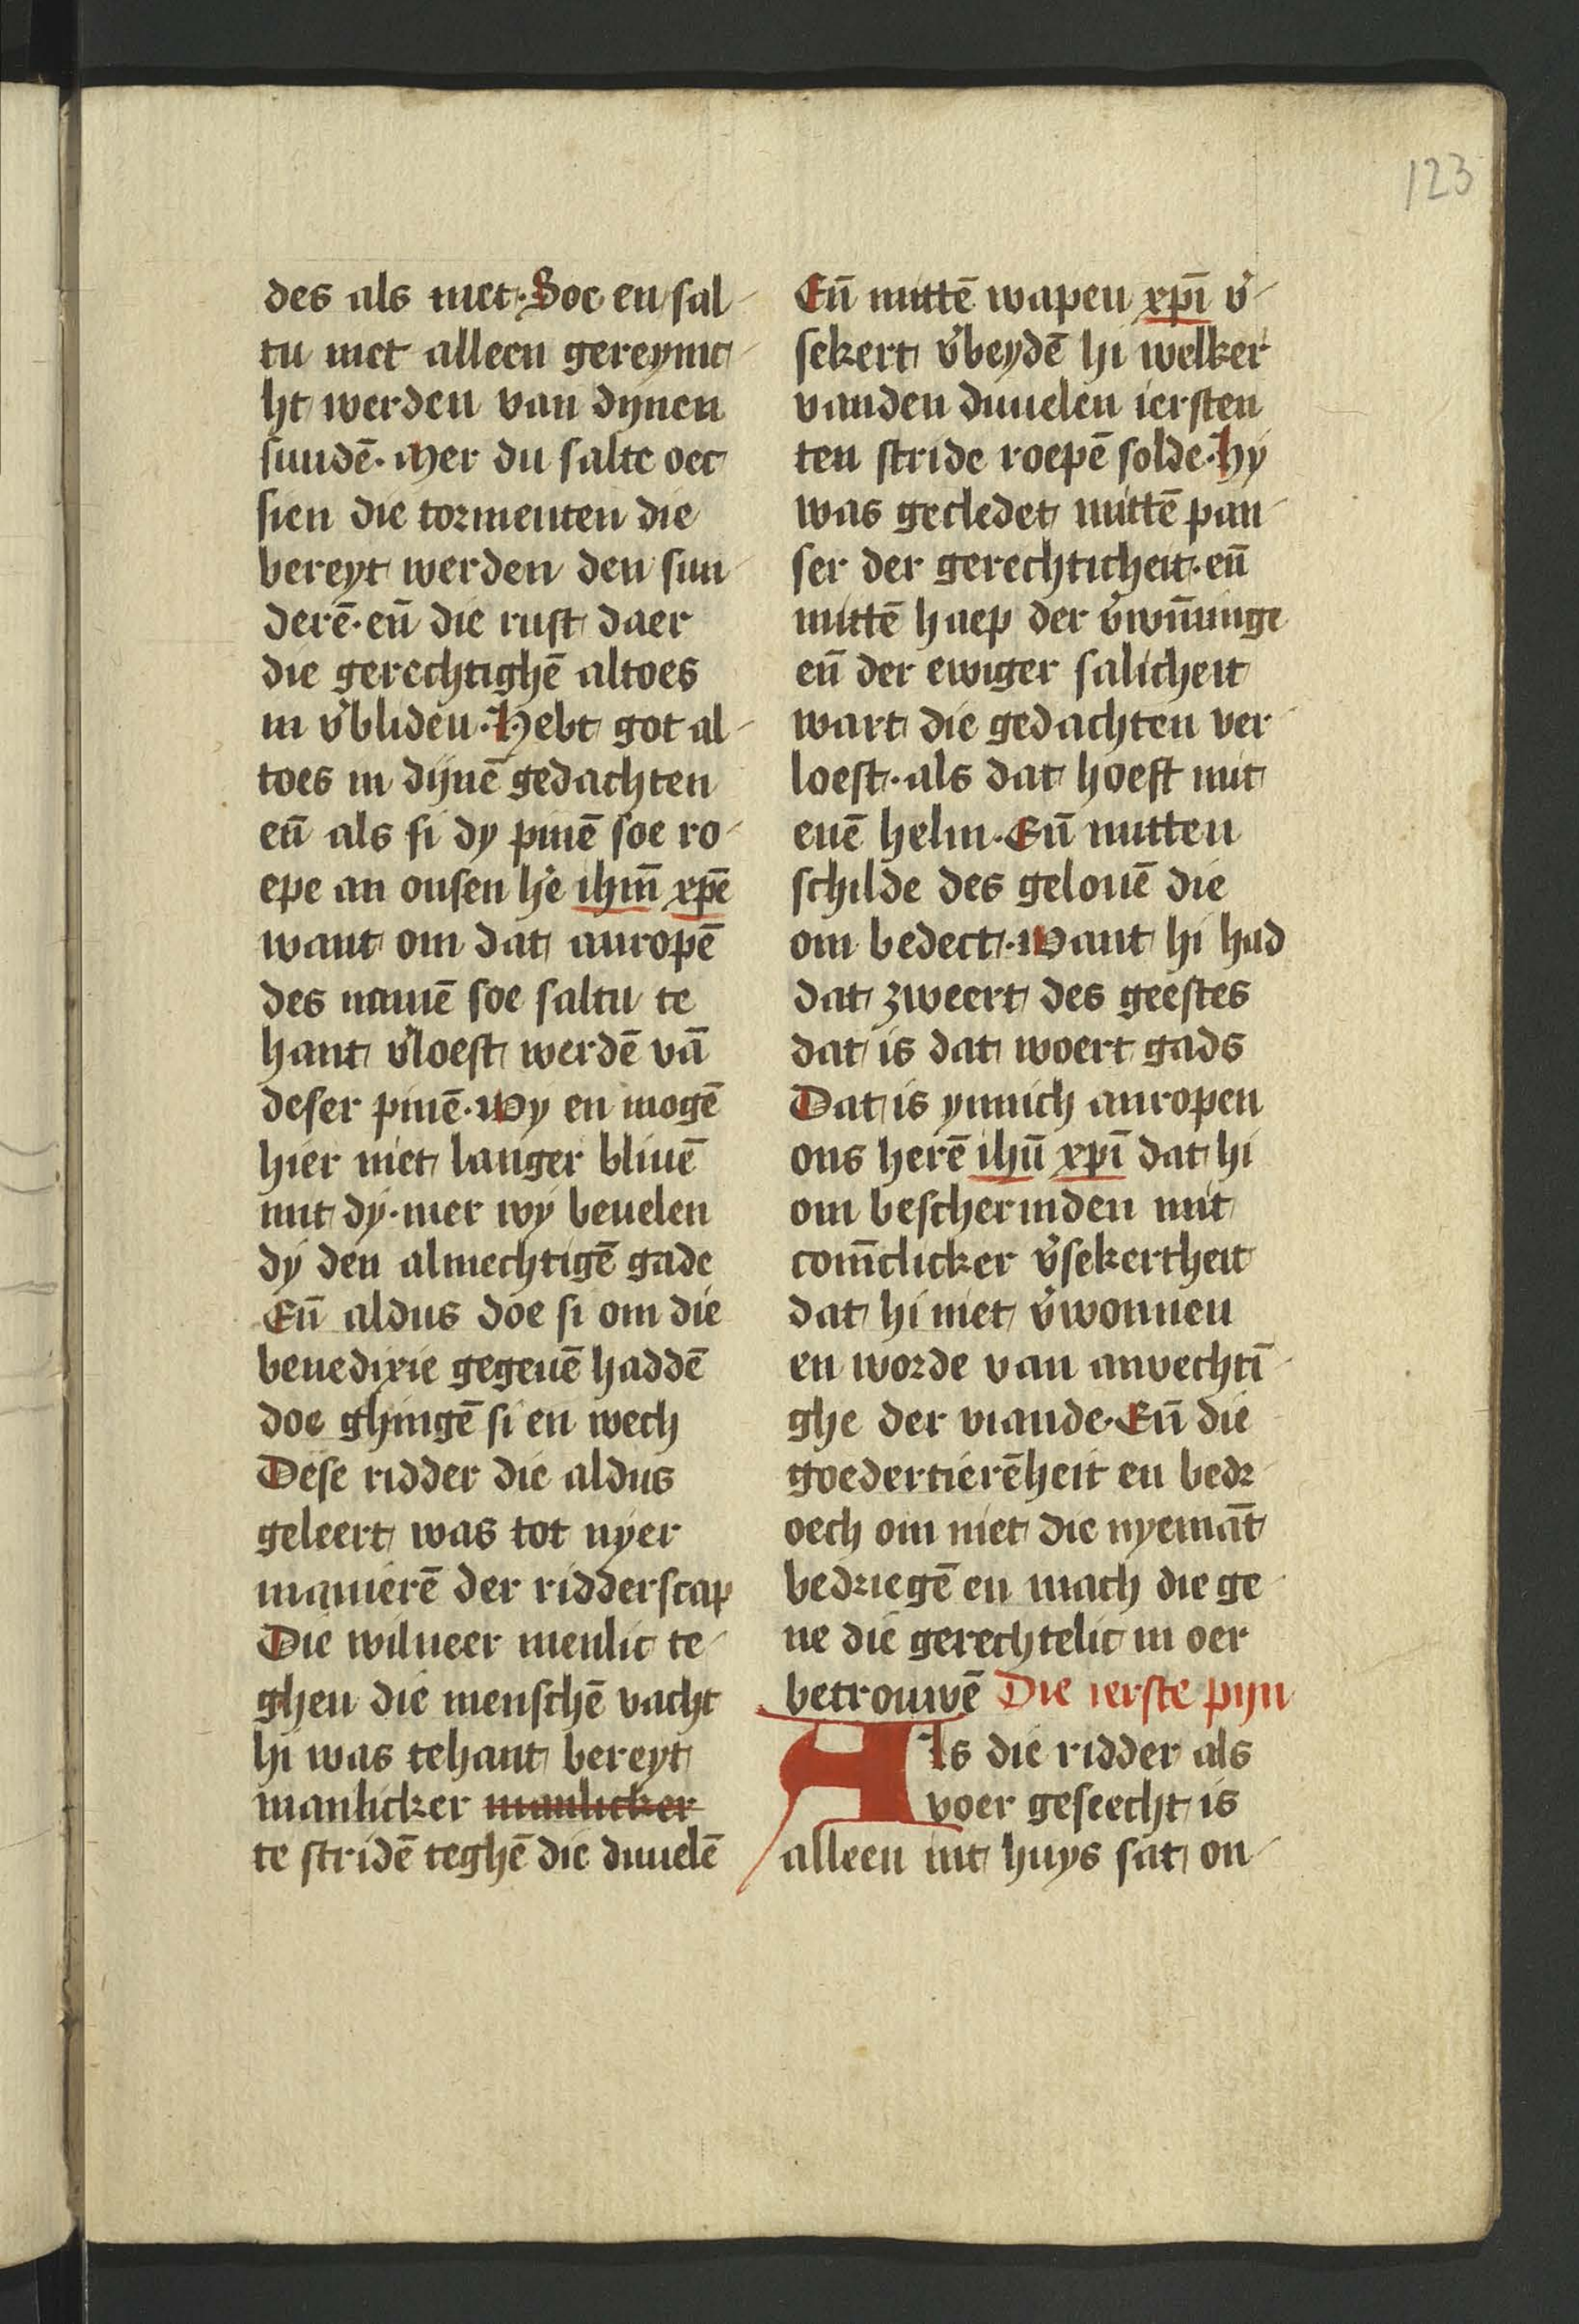 123
des als niet. Soe en sal-
tu niet alleen gereynic-
ht werden van dynen
sundē. Mer du salte oec
sien die tormenten die
bereyt werden den sun-
derē. eñ die rust daer
die gerechtighē altoes
in v̓bliden. Hebt got al-
toes in dijnē gedachten
eñ als si dy pinē soe ro-
epe an onsen h̓e ihm̄ xpē
want om dat anropē
des namē soe saltu te
hant v̓loest werdē vā
deser pinē. Wy en mogē
hier niet langer bliuē
mit dy. mer wy beuelen
dy den almechtigē gade
Eñ aldus doe si om die
benedixie gegeuē haddē
doe ghingē si en wech
Dese ridder die aldus
geleert was tot nyer
manierē der ridderscap
Die wilneer menlic te-
ghen die menschē vacht
hi was tehant bereyt
manlicker manlicker
te stridē teghē die duuelē
Eñ mittē wapen xpī v̓-
sekert v̓beydē hi welker
vanden duuelen iersten
ten stride roepē solde. Hy
was gecledet mittē pan-
ser der gerechticheit. eñ
mittē haep der v̓wīninge
eñ der ewiger salicheit
wart die gedachten ver-
loest. als dat hoeft mit
enē helm. Eñ mitten
schilde des gelouē die
om bedect. Want hi had
dat zweert des geestes
dat is dat woert gads
Dat is ynnich anropen
ons herē ihū xpī dat hi
om beschermden mit
com̄clicker v̓sekertheit
dat hi niet v̓wonnen
en worde van anvechtī-
ghe der viande. Eñ die
goedertierēheit en bedr-
oech om niet die nyemāt
bedriegē en mach die ge-
ne die gerechtelic in oer
betrouwē Die ierste pijn
Als die ridder als
voer geseecht is
alleen int huys sat on-